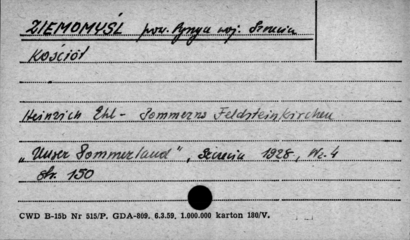 ZIEMOMYŚL pow. Pyrzyce woj. Szczecin
Kościół
Heinrich Ehl - Pommerns Feldsteinkirchen
„Unser Pommerland", Szczecin 1928, Nr. 4
str. 150
CWD B-15b Nr 515/P. GDA-809. 6.3.59. 1.000.000 karton 180/V.